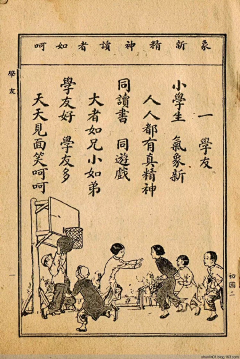 象新精神讀者如呵
一 學友
小學生 氣象新
人人都有真精神
同讀書 同遊戲
大者如兄小如弟
學友好 學友多
天天見面笑呵呵
學友
一
初國二